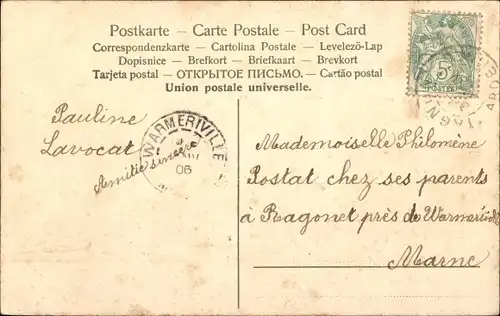 Postkarte – Carte Postale – Post Card
Correspondenzkarte – Cartolina Postale – Levelező-Lap
Dopisnice – Brefkort – Briefkaart – Brevkort
Tarjeta postal – ОТКРЫТОЕ ПИСЬМО. – Cartão postal
Union postale universelle.
5
POSTES
Pauline
Lavocat
Amitié sincère
WARMERIVILLE
06
Mademoiselle Philomène
Postat chez ses parents
à Ragonet près de Warmeriville
Marne